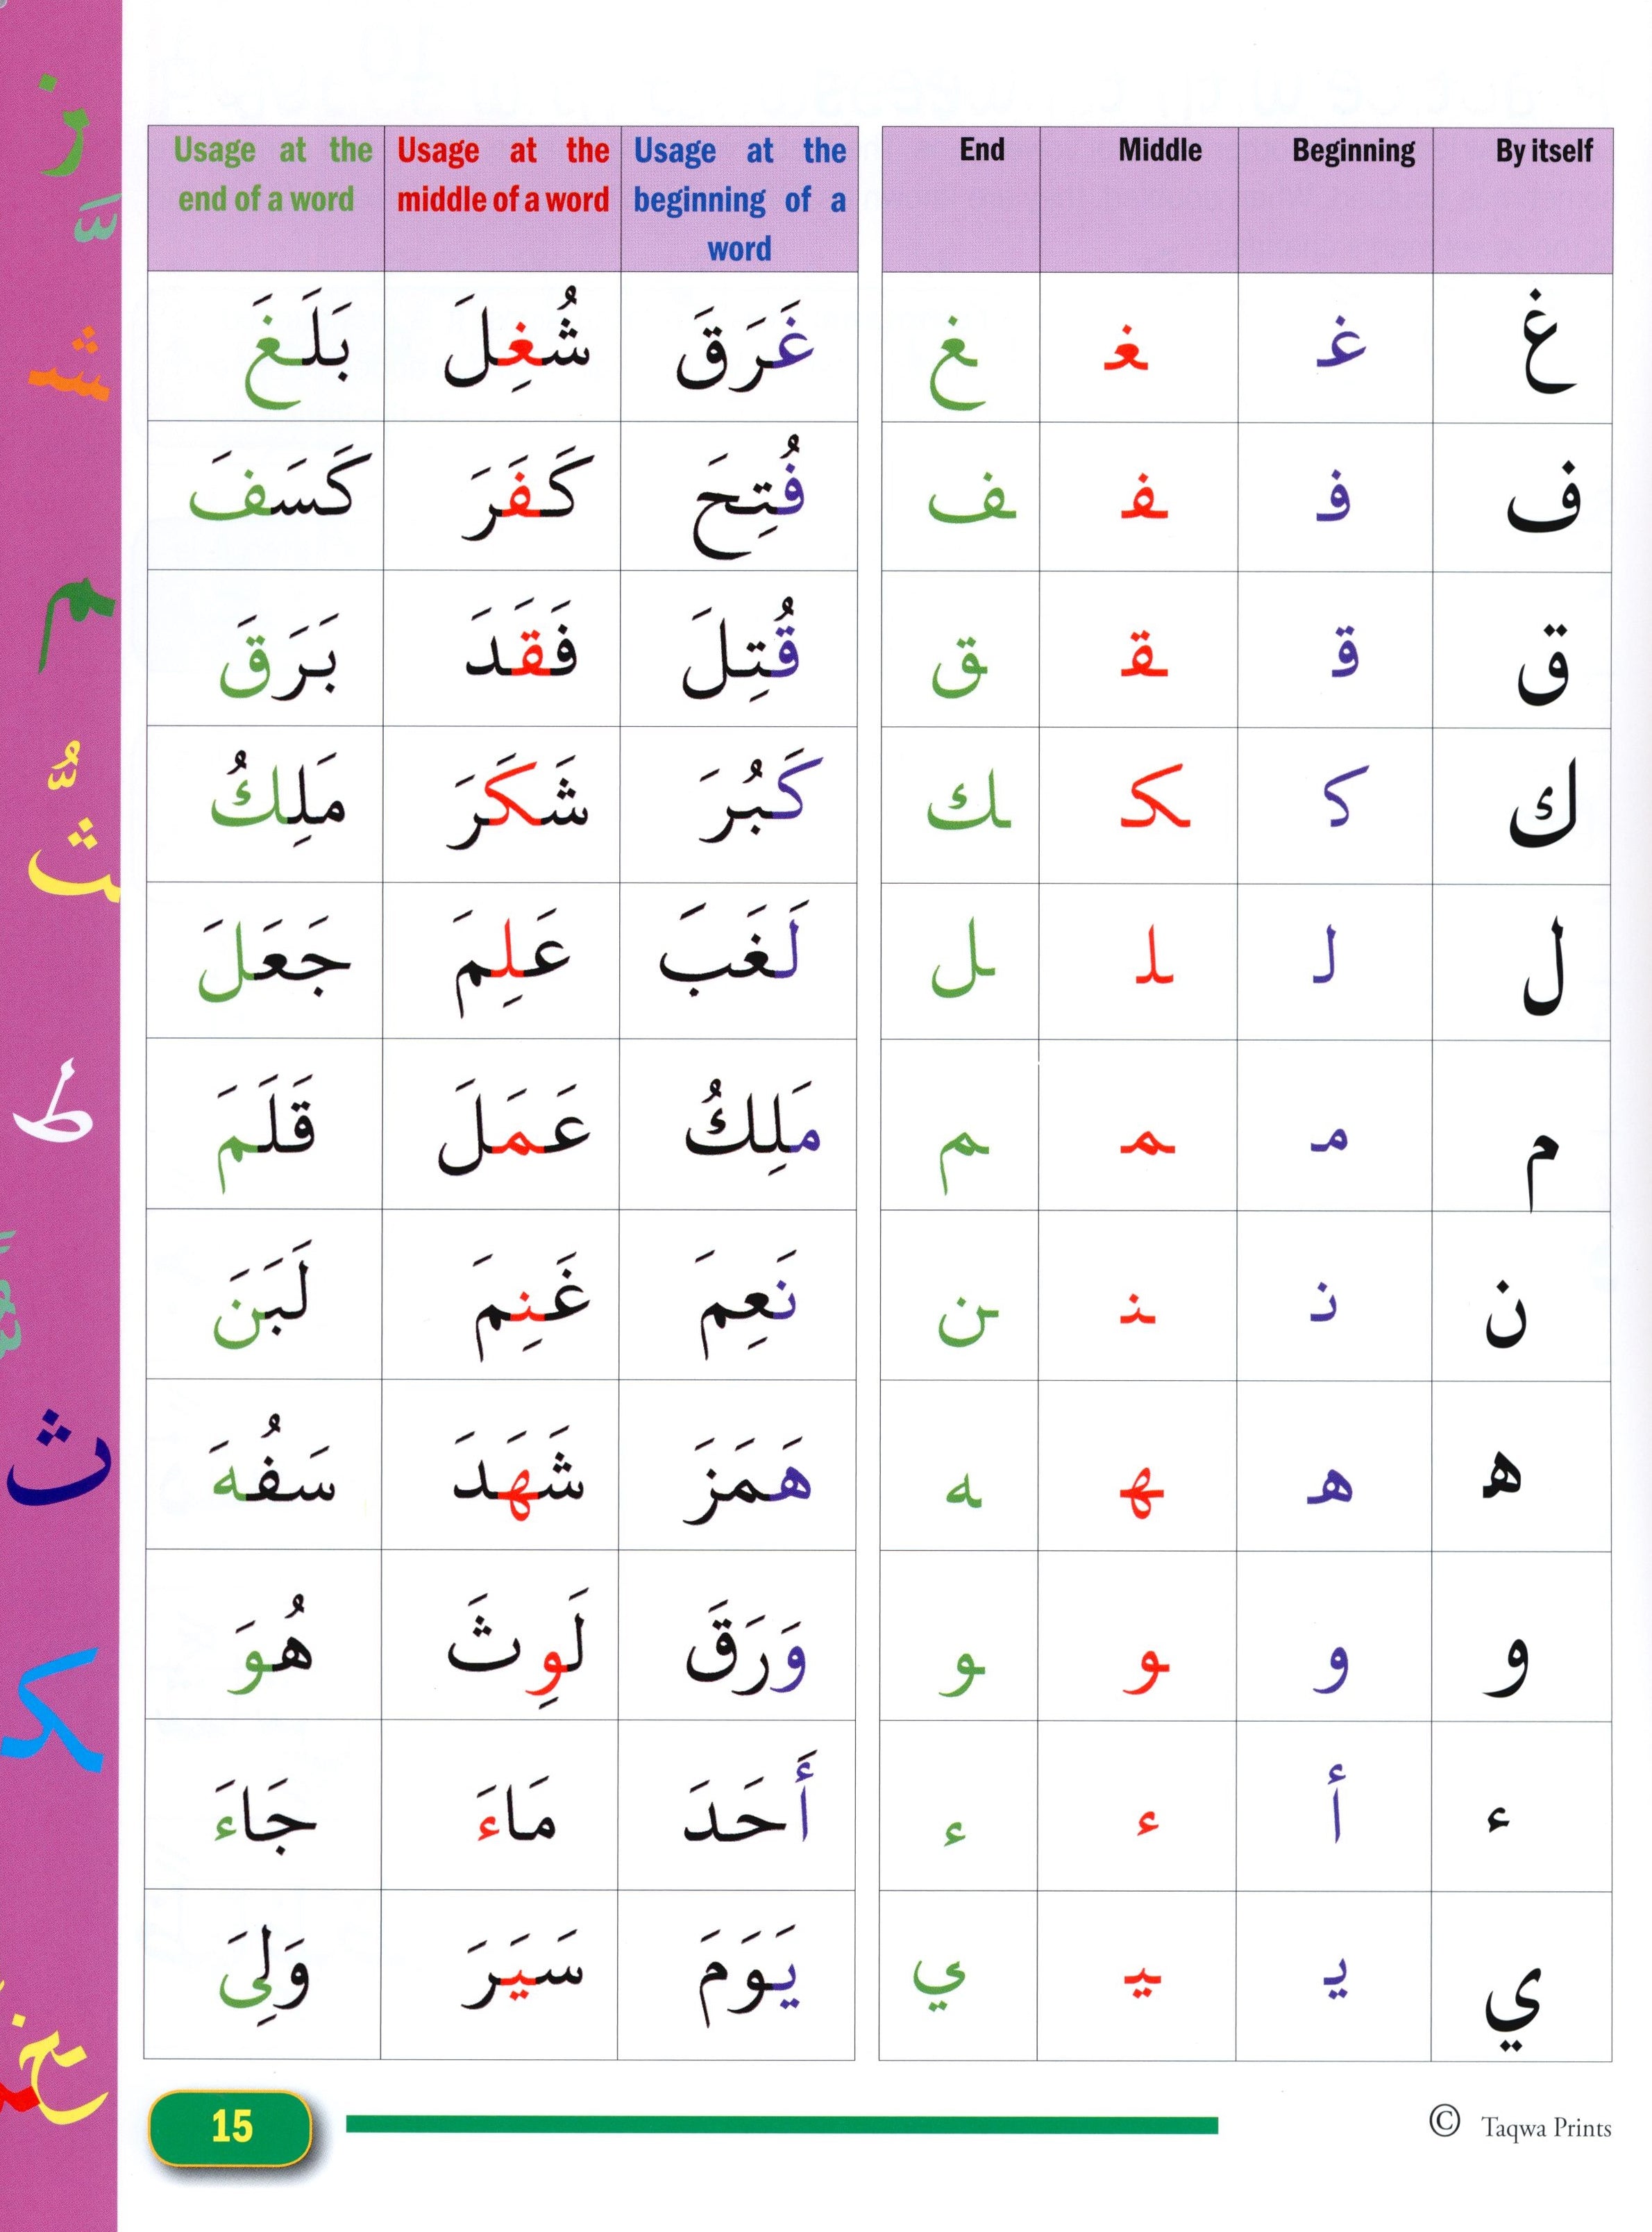 Usage at the end of a word Usage at the middle of a word Usage at the beginning of a word End Middle Beginning By itself
غ غـ ـغـ ـغ غَرَقَ شُغِلَ بَلَغَ
ف فـ ـفـ ـف فُتِحَ كَفَرَ كَسَفَ
ق قـ ـقـ ـق قُتِلَ فَقَدَ بَرَقَ
ك كـ ـكـ ـك كَبُرَ شَكَرَ مَلِكُ
ل لـ ـلـ ـل لَغَبَ عَلِمَ جَعَلَ
م مـ ـمـ ـم مَلِكُ عَمَلَ قَلَمَ
ن نـ ـنـ ـن نَعِمَ غَنِمَ لَبَنَ
ه هـ ـهـ ـه هَمَزَ شَهَدَ سَفُهَ
و و ـو ـو وَرَقَ لَوِثَ هُوَ
ء أ ء ء أَحَدَ مَاءَ جَاءَ
ي يـ ـيـ ي يَوَمَ سَيَرَ وَلِیَ
15
© Taqwa Prints